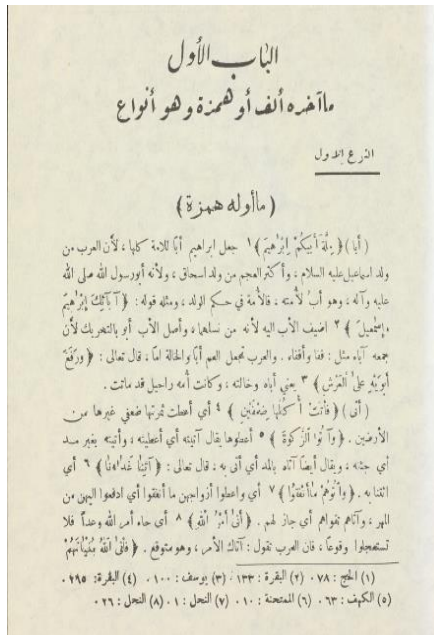 الباب الأول
ما آخره ألف أو همزة وهو أنواع
النوع الاول
( ما أوله همزة )
( أبا ) ﴿ مِلَّةَ أَبِيكُمْ إِبْرَاهِيمَ ﴾ ١ جعل ابراهيم أبًا للامة كلها ، لأن العرب من
ولد اسماعيل عليه السلام ، وأكثر العجم من ولد اسحاق ، ولأنه أبو رسول الله صلى الله
عليه وآله ، وهو أبٌ لأمته ، فالأمة في حكم الولد ، ومثله قوله : ﴿ آبَآئِكَ إِبْرَاهِيمَ
وَإِسْمَٰعِيلَ ﴾ ٢ اضيف الأب اليه لأنه من نسلهما ، وأصل الأب أبو بالتحريك لأن
جمعه آباء مثل : قفا وأقفاء . والعرب تجعل العم أبًا والخالة امًا ، قال تعالى : ﴿ وَرَفَعَ
أَبَوَيْهِ عَلَى ٱلْعَرْشِ ﴾ ٣ يعني أباه وخالته ، وكانت أمه راحيل قد ماتت .
( أتى ) ﴿ فَآتَتْ أُكُلَهَا ضِعْفَيْنِ ﴾ ٤ أي أعطت ثمرتها ضعفي غيرها من
الأرضين . ﴿ وَآتُوا ٱلزَّكَوٰةَ ﴾ ٥ أعطوها يقال آتيته أي أعطيته ، وأتيته بغير مد
أي جئته ، ويقال أيضاً آتاه بالمد أي أتى به ، قال تعالى : ﴿ آتِنَا غَدَاءَنَا ﴾ ٦ أي
ائتنا به . ﴿ وَآتُوهُمْ مَا أَنْفَقُوا ﴾ ٧ أي واعطوا أزواجهن ما أنفقوا أي ادفعوا اليهن من
المهر ، وآتاهم تقواهم أي جاز لهم . ﴿ أَتَىٰ أَمْرُ ٱللَّهِ ﴾ ٨ أي جاء أمر الله وعداً فلا
تستعجلوا وقوعاً ، فان العرب تقول : أتاك الأمر ، وهو متوقع . ﴿ فَأَتَى ٱللَّهُ بُنْيَانَهُمْ
(١) الحج : ٠٧٨ (٢) البقرة : ١٣٣ (٣) يوسف : ١٠٠ (٤) البقرة : ٢٩٥
(٥) الكهف : ٦٣ (٦) الممتحنة : ١٠ (٧) النحل : ١ (٨) النحل : ٠٢٦